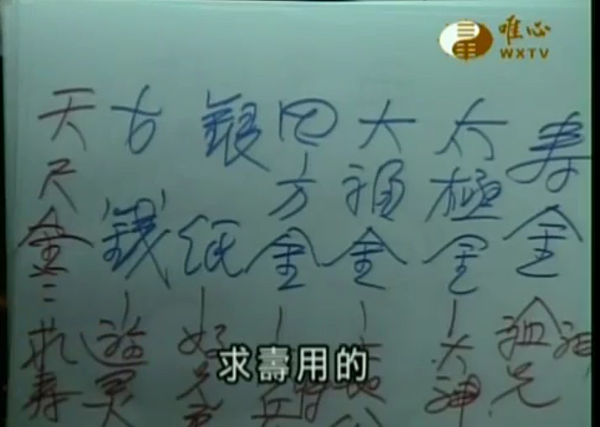 唯心
WXTV
寿金
太極金-大神
大福金
四方金
銀紙-好兄
古錢
天尺金=求寿
求壽用的